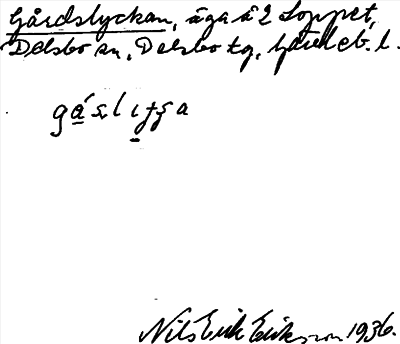 Gårdslyckan, äga å 2 Loppet,
Delsbo sn, Delsbo tg, Gävleb. l.
Nils Erik Eriksson 1936.